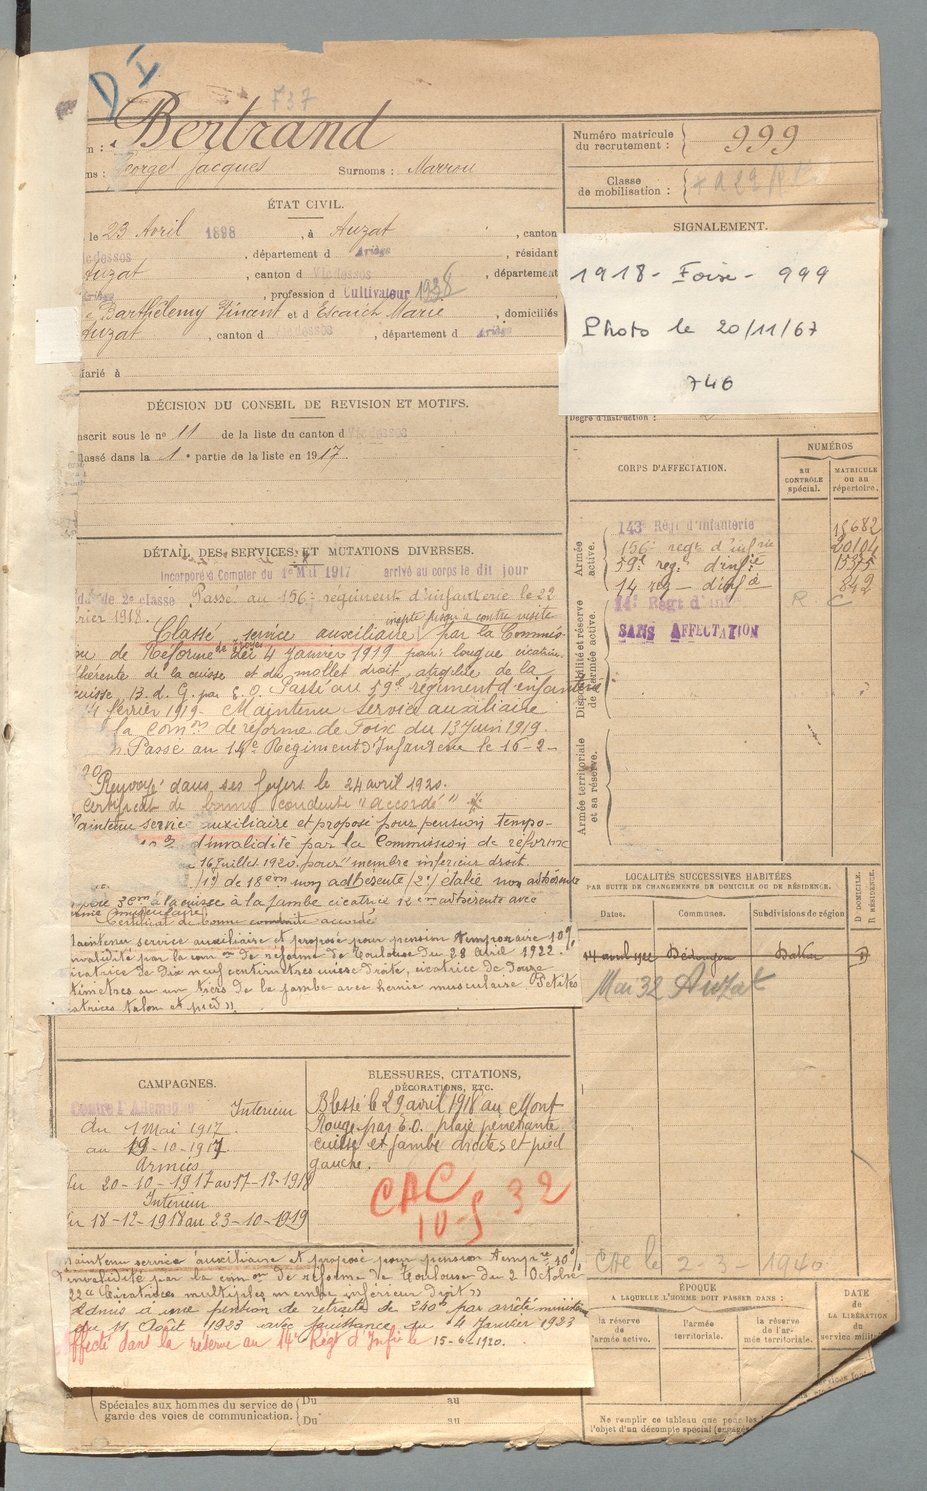 D I
F37
Bertrand
Georges Jacques Surnoms : Marrou
ÉTAT CIVIL.
le 23 Avril 1898, à Auzat, canton
Vicdessos, département d Ariège, résidant
Auzat, canton d Vicdessos, département
Ariège, profession d Cultivateur 1928
Barthélemy Vincent et d Escaich Marie, domiciliés
Auzat, canton d Vicdessos, département d Ariège
arié à
DÉCISION DU CONSEIL DE REVISION ET MOTIFS.
nscrit sous le nº 11 de la liste du canton d Vicdessos
lassé dans la 1e partie de la liste en 1917.
DÉTAIL DES SERVICES ET MUTATIONS DIVERSES.
Incorporé à Compter du 1er Mai 1917 arrivé au corps le dit jour
de 2e classe Passé au 156e régiment d'infanterie le 22
rier 1918. inapte jusqu'à contre visite
Classé service auxiliaire par la Commis-
on de Réforme de du 4 Janvier 1919 pour : longue cicatrice
hérente de la cuisse et du mollet droit, atrophie de la
cuisse, B. d. G. par E. O. Passé au 59e régiment d'infanterie
4 février 1919. Maintenu service auxiliaire
la Comon de réforme de Foix du 13 Juin 1919.
Passé au 14e Régiment d'Infanterie le 16-2-
20
Renvoyé dans ses foyers le 24 avril 1920.
Certificat de bonne conduite "accordé"
Maintenu service auxiliaire et proposé pour pension tempo-
d'invalidité par la Commission de réforme
16 Juillet 1920. pour "membre inférieur droit.
1º) de 18cm non adhérente /2º/ étalée non adhérente
3cm à la cuisse à la jambe cicatrice 12cm adhérente avec
hernie musculaire
Certificat de bonne conduite accordé
Maintenu service auxiliaire et proposé pour pension temporaire 10%
invalidité par la comon de réforme de Toulouse du 28 Avril 1922.
icatrice de Dix neuf centimètres cuisse droite, cicatrice de Douze
timètres au un tiers de la jambe avec hernie musculaire Petites
atrices talon et pied"
CAMPAGNES.
Contre l'Allemagne Intérieur
du 1 Mai 1917.
au 19-10-1917.
Armées
Du 20-10-1917 au 17-12-1918
Intérieur
Du 18-12-1918 au 23-10-1919
BLESSURES, CITATIONS,
DÉCORATIONS, ETC.
Blessé le 29 avril 1918 au Mont
Rouge par E.O. plaie pénétrante
cuisse et jambe droites et pied
gauche.
CAC
10-5 32
Maintenu service auxiliaire et proposé pour pension tempre 10%
d'invalidité par la comon de réforme de Toulouse du 2 Octobre
22 "Cicatrices multiples membre inférieur droit"
Admis à une pension de retraite de 240f par arrêté ministériel
du 11 Août 1923 avec jouissance du 4 Janvier 1923
Affecté dans la réserve au 14e Régt d'Infie le 15-6-1920.
Spéciales aux hommes du service de
garde des voies de communication.
Du au
Du au
Numéro matricule
du recrutement : 999
Classe
de mobilisation :
SIGNALEMENT.
1918 - Foix - 999
Photo le 20/11/67
746
Degré d'instruction : 2
CORPS D'AFFECTATION.
NUMÉROS
au
CONTRÔLE
spécial.
MATRICULE
ou au
répertoire.
Armée
active.
143e Régt d'Infanterie 15682
156e régt d'infrie 20104
59e reg. d'infie 15375
14 rég d'infie 842
Disponibilité et réserve
de l'armée active.
14e Régt d'Inf R C
SANS AFFECTATION
Armée territoriale
et sa réserve.
LOCALITÉS SUCCESSIVES HABITÉES
PAR SUITE DE CHANGEMENTS DE DOMICILE OU DE RÉSIDENCE.
Dates. Communes. Subdivisions de région
D. DOMICILE.
R. RÉSIDENCE.
14 avril 1922 D
Mai 32 Auzat
CAC le 2-3-1940
ÉPOQUE
A LAQUELLE L'HOMME DOIT PASSER DANS :
la réserve
de
l'armée active.
l'armée
territoriale.
la réserve
de l'ar-
mée territoriale.
DATE
de
LA LIBÉRATION
du
service militaire
Ne remplir ce tableau que pour les
l'objet d'un décompte spécial (engagés